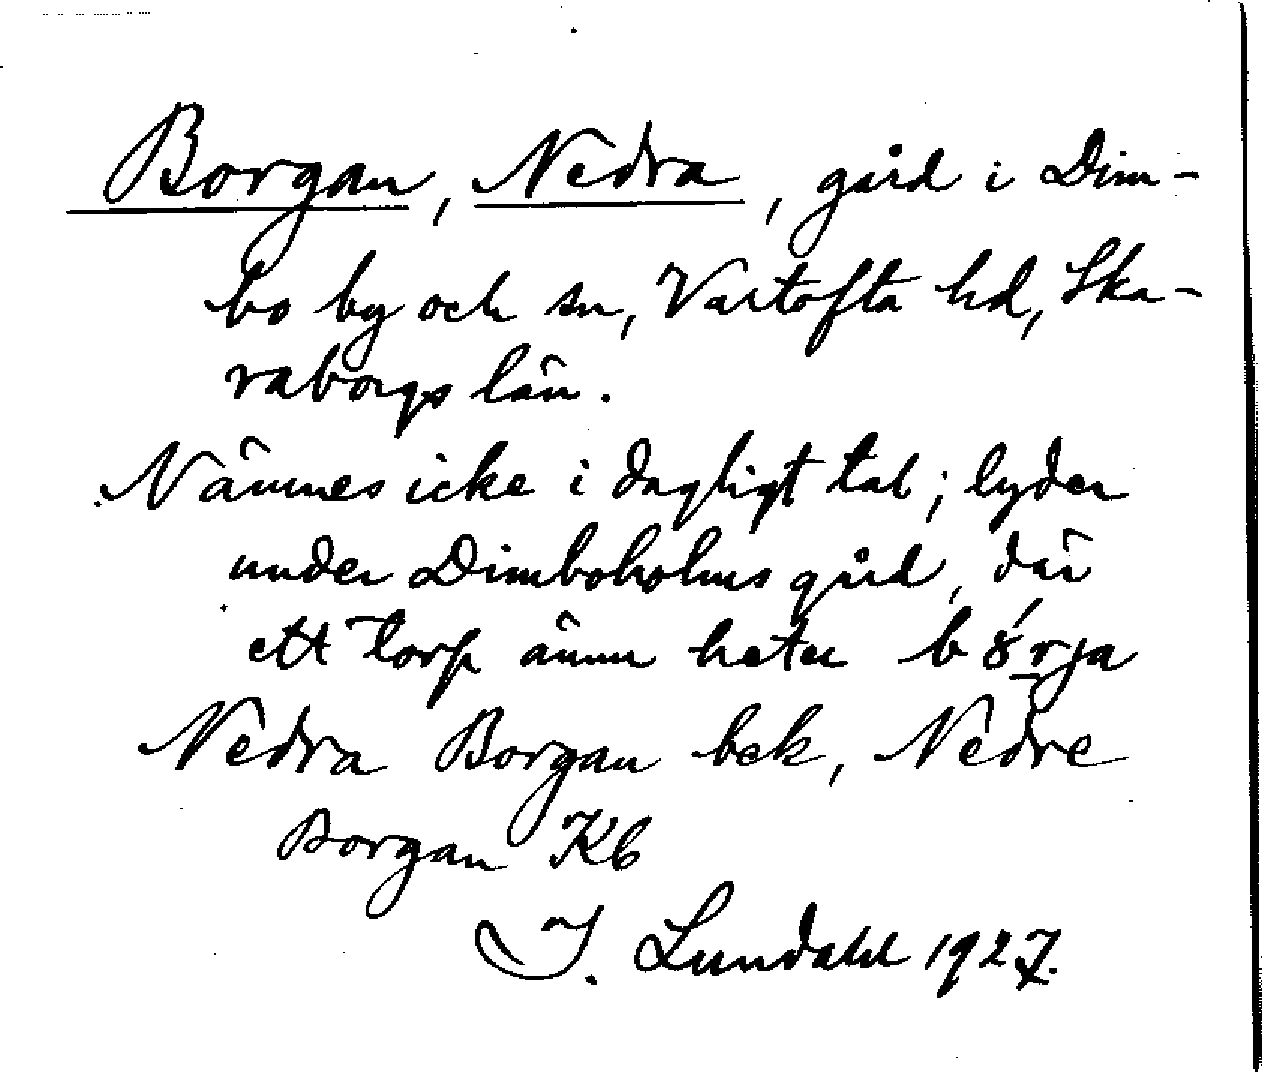 Borgan, Nedra, gård i Dim-
bo by och sn, Vartofta hd, Ska-
raborgs län.
Nämnes icke i dagligt tal; lyder
under Dimboholms gård, där
ett torp ännu heter
Nedra Borgan bek, Nedre
Borgan Kb
I. Lundahl 1927.